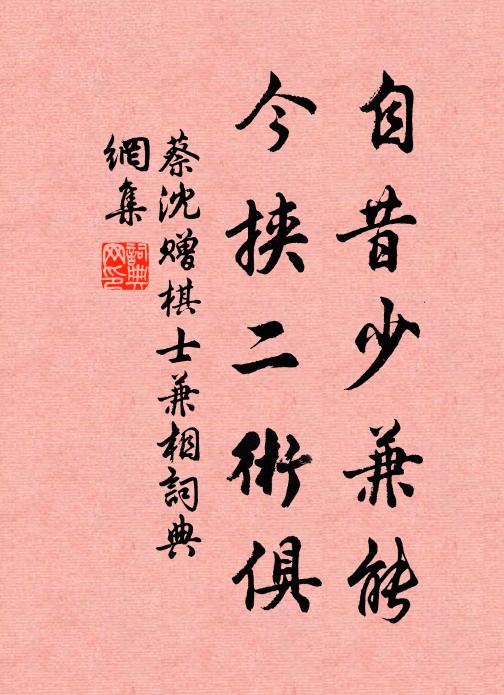 自昔少兼能
今挾二術俱
蔡沈贈棋士兼相詞典
網集
詞典
网印